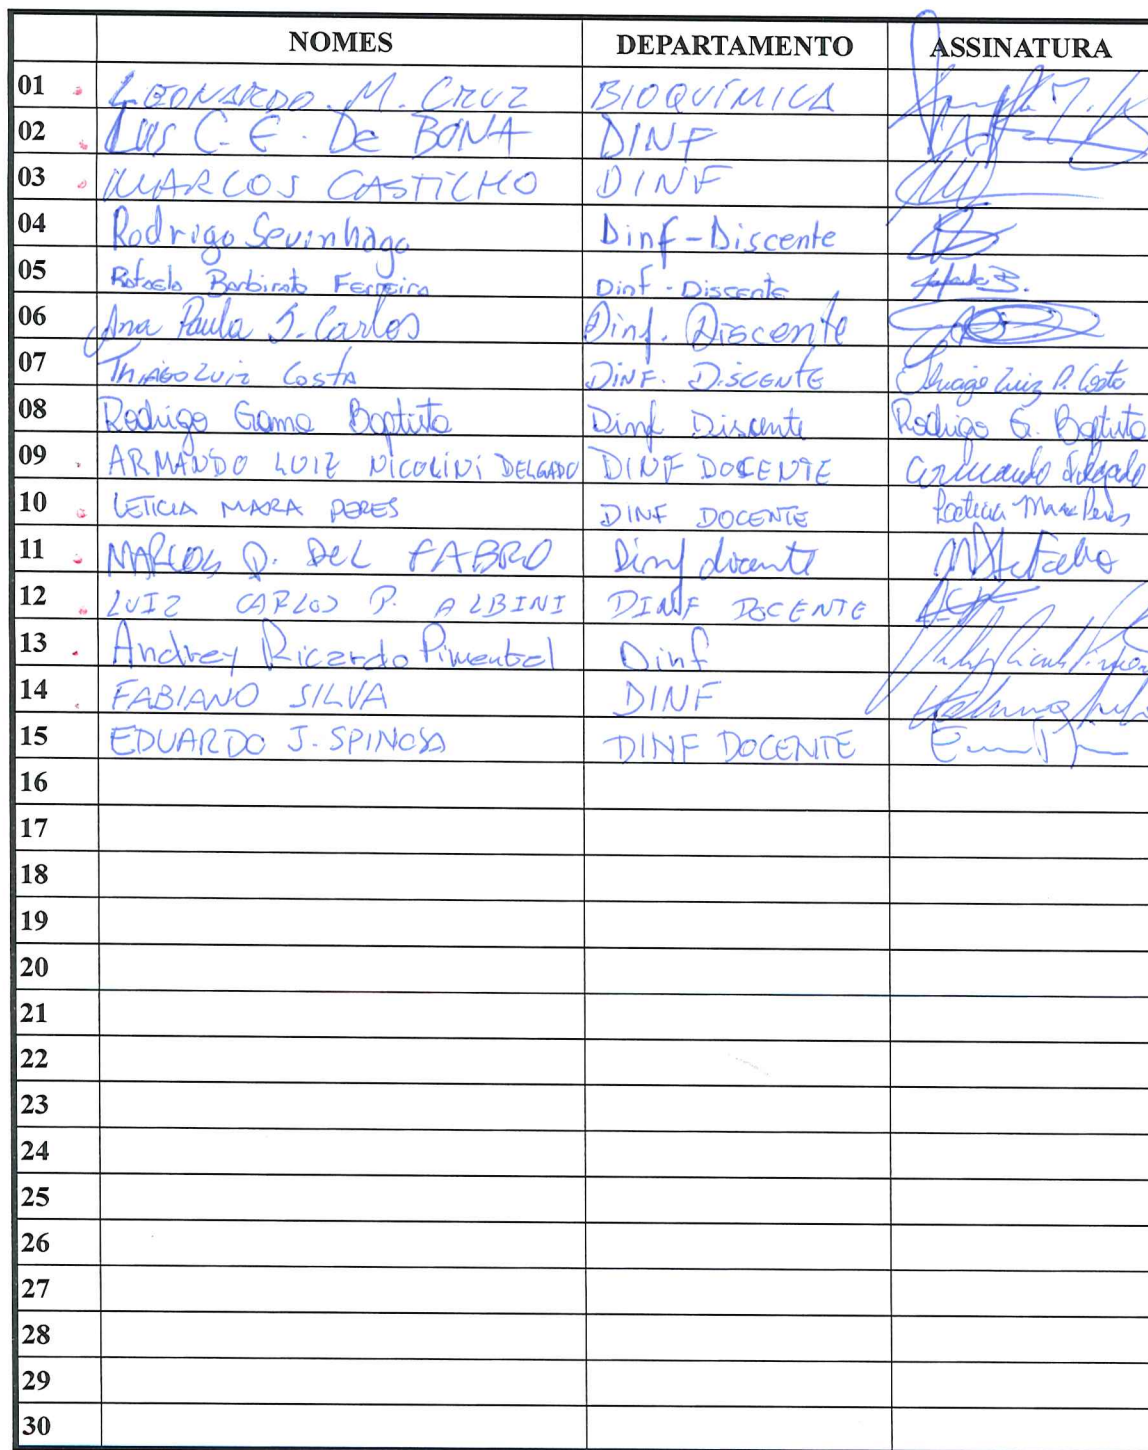 NOMES DEPARTAMENTO ASSINATURA
01 LEONARDO. M. CRUZ BIOQUÍMICA
02 LUIS C. E. De BONA DINF
03 MARCOS CASTILHO DINF
04 Rodrigo Sevinhago Dinf-Discente
05 Rafaela Barbirato Ferreira Dinf - Discente Rafaela B.
06 Ana Paula J. Carlos Dinf. Discente
07 THIAGO LUIZ COSTA DINF. DISCENTE Thiago Luiz P. Costa
08 Rodrigo Gama Baptista Dinf Discente Rodrigo G. Baptista
09 ARMANDO LUIZ NICOLINI DELGADO DINF DOCENTE Armando Delgado
10 LETICIA MARA PERES DINF DOCENTE Leticia Mara Peres
11 MARCOS D. DEL FABRO Dinf docente
12 LUIZ CARLOS P. ALBINI DINF DOCENTE
13 Andrey Ricardo Pimentel Dinf
14 FABIANO SILVA DINF
15 EDUARDO J. SPINOSA DINF DOCENTE
16
17
18
19
20
21
22
23
24
25
26
27
28
29
30